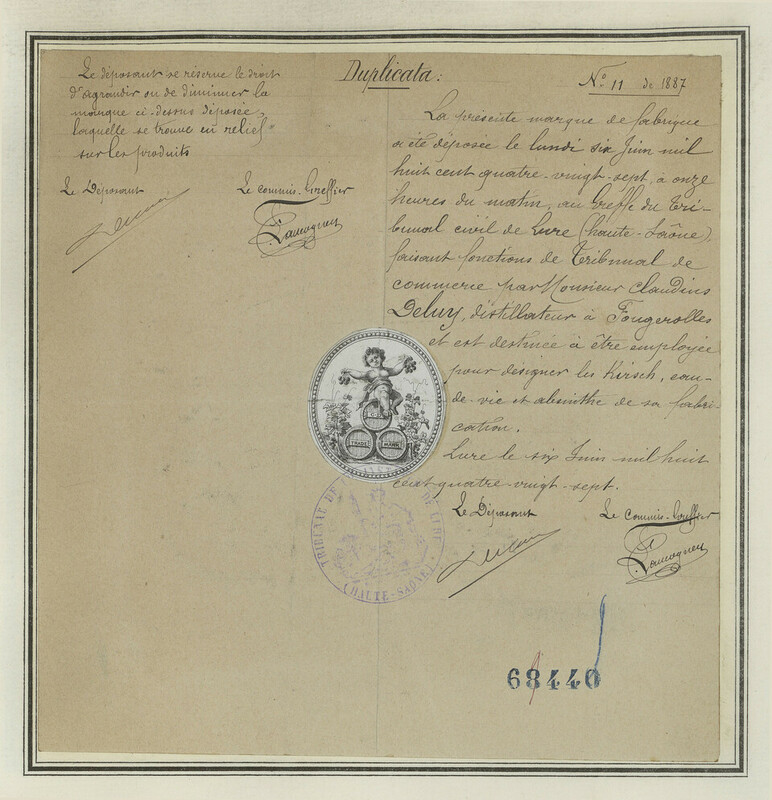 Duplicata:
Le déposant se reserve le droit
d'agrandir ou de diminuer la
marque ci-dessus déposée,
laquelle se trouve en relief
sur les produits
Le Déposant
Le commis-Greffier
No. 11 de 1887
La présente marque de fabrique
a été déposée le lundi six Juin mil
huit cent quatre-vingt-sept, à onze
heures du matin, au Greffe du Tri-
bunal civil de Lure (haute-Saône),
faisant fonctions de Tribunal de
commerce par Monsieur Claudius
Deluy, distillateur à Fougerolles
et est destinée à être employée
pour désigner les Kirsch, eau-
de-vie et absinthe de sa fabri-
cation.
Lure le six Juin mil huit
cent quatre-vingt-sept.
Le Déposant
Le commis-Greffier
TRADE MARK
TRIBUNAL DE LURE
(HAUTE-SAONE)
68440